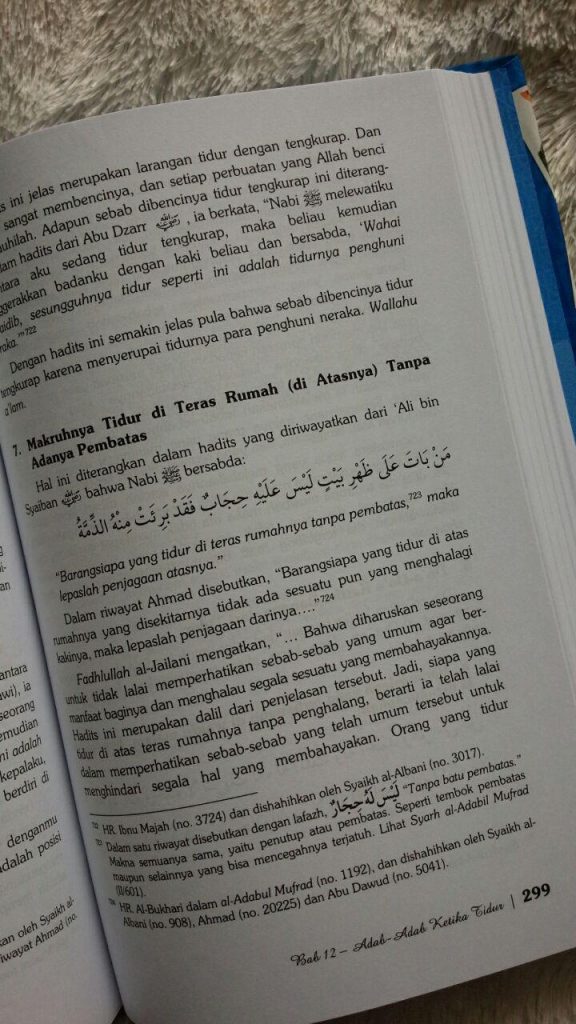 s ini jelas merupakan larangan tidur dengan tengkurap. Dan
sangat membencinya, dan setiap perbuatan yang Allah benci
uhilah. Adapun sebab dibencinya tidur tengkurap ini diterang-
am hadits dari Abu Dzarr رضي الله عنه, ia berkata, “Nabi ﷺ melewatiku
ntara aku sedang tidur tengkurap, maka beliau kemudian
ggerakkan badanku dengan kaki beliau dan bersabda, ‘Wahai
aidib, sesungguhnya tidur seperti ini adalah tidurnya penghuni
raka.’”722
Dengan hadits ini semakin jelas pula bahwa sebab dibencinya tidur
tengkurap karena menyerupai tidurnya para penghuni neraka. Wallahu
a'lam.
7. Makruhnya Tidur di Teras Rumah (di Atasnya) Tanpa
Adanya Pembatas
Hal ini diterangkan dalam hadits yang diriwayatkan dari ‘Ali bin
Syaiban رضي الله عنه bahwa Nabi ﷺ bersabda:
مَنْ بَاتَ عَلَى ظَهْرِ بَيْتٍ لَيْسَ عَلَيْهِ حِجَابٌ فَقَدْ بَرِئَتْ مِنْهُ الذِّمَّةُ
“Barangsiapa yang tidur di teras rumahnya tanpa pembatas,723 maka
lepaslah penjagaan atasnya.”
Dalam riwayat Ahmad disebutkan, “Barangsiapa yang tidur di atas
rumahnya yang disekitarnya tidak ada sesuatu pun yang menghalagi
kakinya, maka lepaslah penjagaan darinya....”724
Fadhlullah al-Jailani mengatkan, “... Bahwa diharuskan seseorang
untuk tidak lalai memperhatikan sebab-sebab yang umum agar ber-
manfaat baginya dan menghalau segala sesuatu yang membahayakannya.
Hadits ini merupakan dalil dari penjelasan tersebut. Jadi, siapa yang
tidur di atas teras rumahnya tanpa penghalang, berarti ia telah lalai
dalam memperhatikan sebab-sebab yang telah umum tersebut untuk
menghindari segala hal yang membahayakan. Orang yang tidur
722 HR. Ibnu Majah (no. 3724) dan dishahihkan oleh Syaikh al-Albani (no. 3017).
723 Dalam satu riwayat disebutkan dengan lafazh, لَيْسَ لَهُ حِجَارٌ “Tanpa batu pembatas.”
Makna semuanya sama, yaitu penutup atau pembatas. Seperti tembok pembatas
maupun selainnya yang bisa mencegahnya terjatuh. Lihat Syarh al-Adabil Mufrad
(II/601).
724 HR. Al-Bukhari dalam al-Adabul Mufrad (no. 1192), dan dishahihkan oleh Syaikh al-
Albani (no. 908), Ahmad (no. 20225) dan Abu Dawud (no. 5041).
Bab 12 – Adab-Adab Ketika Tidur | 299
antara
wi), ia
seorang
emudian
ni adalah
kepalaku,
berdiri di
denganmu
adalah posisi
kan oleh Syaikh al-
riwayat Ahmad (no.